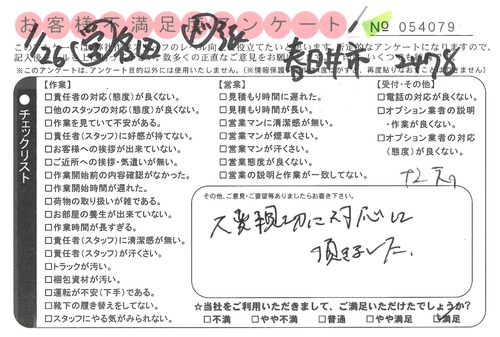 お客様不満足度アンケート
No 054079
1/26
春日井市 2478
※このアンケートは、アンケート目的以外には使用いたしません。
チェックリスト
【作業】
□責任者の対応(態度)が良くない。
□他のスタッフの対応(態度)が良くない。
□作業を見ていて不安がある。
□責任者(スタッフ)に好感が持てない。
□お客様への挨拶が出来ていない。
□ご近所への挨拶・気遣いが無い。
□作業開始前の内容確認がなかった。
□作業開始時間が遅れた。
□荷物の取り扱いが雑である。
□お部屋の養生が出来ていない。
□作業時間が長すぎる。
□責任者(スタッフ)に清潔感が無い。
□責任者(スタッフ)が汗くさい。
□トラックが汚い。
□梱包資材が汚い。
□運転が不安(下手)である。
□靴下の履き替えをしてない。
□スタッフにやる気がみられない。
【営業】
□見積もり時間に遅れた。
□見積もり時間が長い。
□営業マンに清潔感が無い。
□営業マンが煙草くさい。
□営業マンが汗くさい。
□営業態度が良くない。
□営業の説明と作業が一致してない。
【受付・その他】
□電話の対応が良くない。
□オプション業者の説明
・作業が良くない。
□オプション業者の対応
(態度)が良くない。
その他、ご意見・ご要望等ありましたらお書き下さい。
大変親切に対応して
頂きました。
☆当社をご利用いただきまして、ご満足いただけたでしょうか?
□不満 □やや不満 □普通 □やや満足 □満足